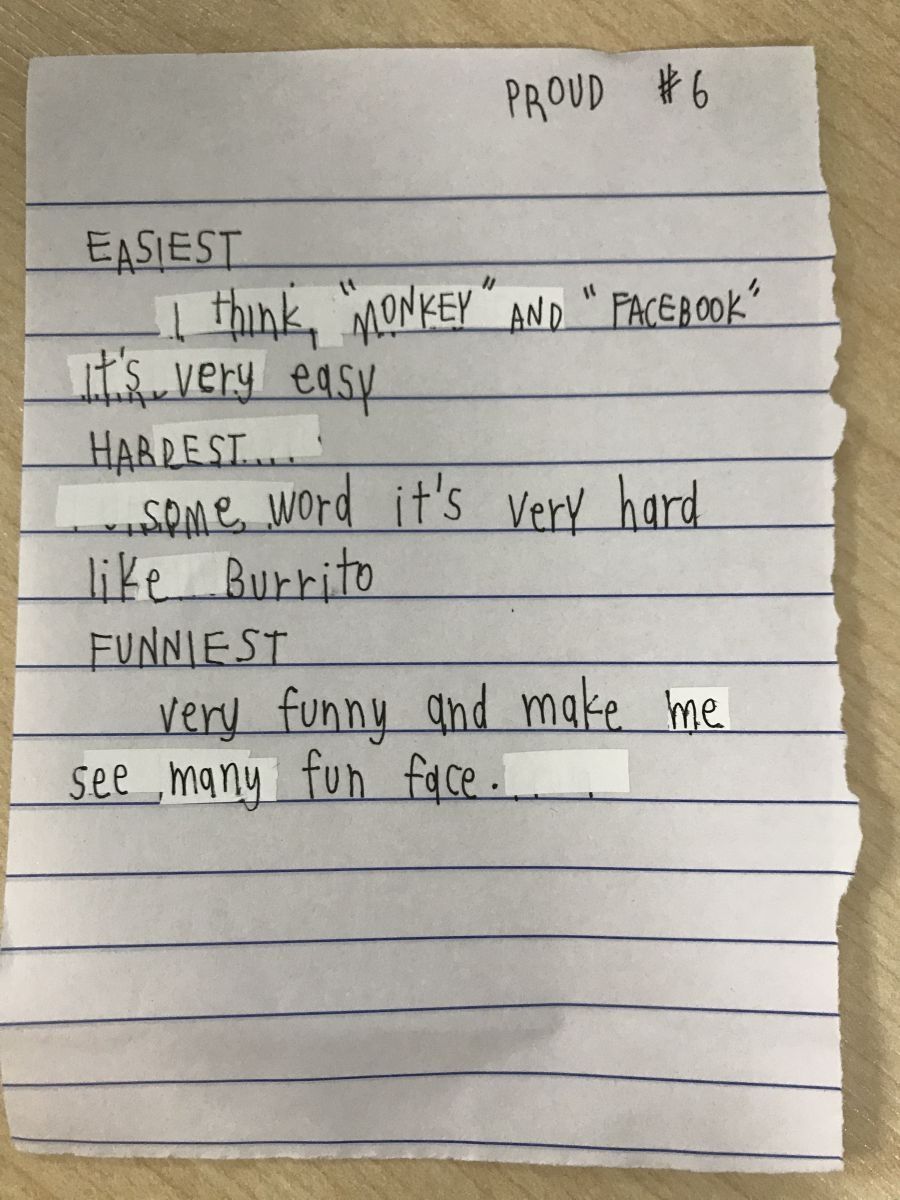 PROUD #6
EASIEST
I think, "MONKEY" AND "FACEBOOK"
it's very easy
HARDEST....
some word it's very hard
like Burrito
FUNNIEST
very funny and make me
see many fun face.